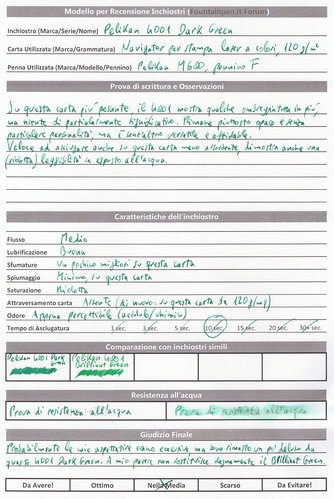 Modello per Recensione Inchiostri (Fountainpen.it Forum)
Inchiostro (Marca/Serie/Nome) Pelikan 4001 Dark Green
Carta Utilizzata (Marca/Grammatura) Navigator per stampa laser a colori, 120 g/m²
Penna Utilizzata (Marca/Modello/Pennino) Pelikan M600, pennino F
Prova di scrittura e Osservazioni
Su questa carta più pesante il 4001 mostra qualche ombreggiatura in più,
ma niente di particolarmente significativo. Rimane piuttosto opaco e senza
particolare personalità, ma è senz'altro versatile e affidabile.
Veloce ad asciugare anche su questa carta meno assorbente, dimostra anche una
(ridotta) leggibilità in esposto all'acqua.
Caratteristiche dell'inchiostro
Flusso Medio
Lubrificazione Buona
Sfumature Un pochino migliori su questa carta
Spiumaggio Minimo, su questa carta
Saturazione Ridotta
Attraversamento carta Assente (di nuovo: su questa carta da 120 g/mq)
Odore Appena percettibile (acidulo/chimico)
Tempo di Asciugatura 1 sec. 3 sec. 5 sec. 10 sec. 15 sec. 20 sec. 30+ sec.
Comparazione con inchiostri simili
Pelikan 4001 Dark Green
Pelikan 4001 Brilliant Green
Resistenza all'acqua
Prova di resistenza all'acqua Prova di resistenza all'acqua
Giudizio Finale
Probabilmente le mie aspettative erano eccessive, ma sono rimasto un po' deluso da
questo 4001 Dark Green. A mio parere non sostituisce degnamente il Brilliant Green.
Da Avere! Ottimo Nella Media Scarso Da Evitare!